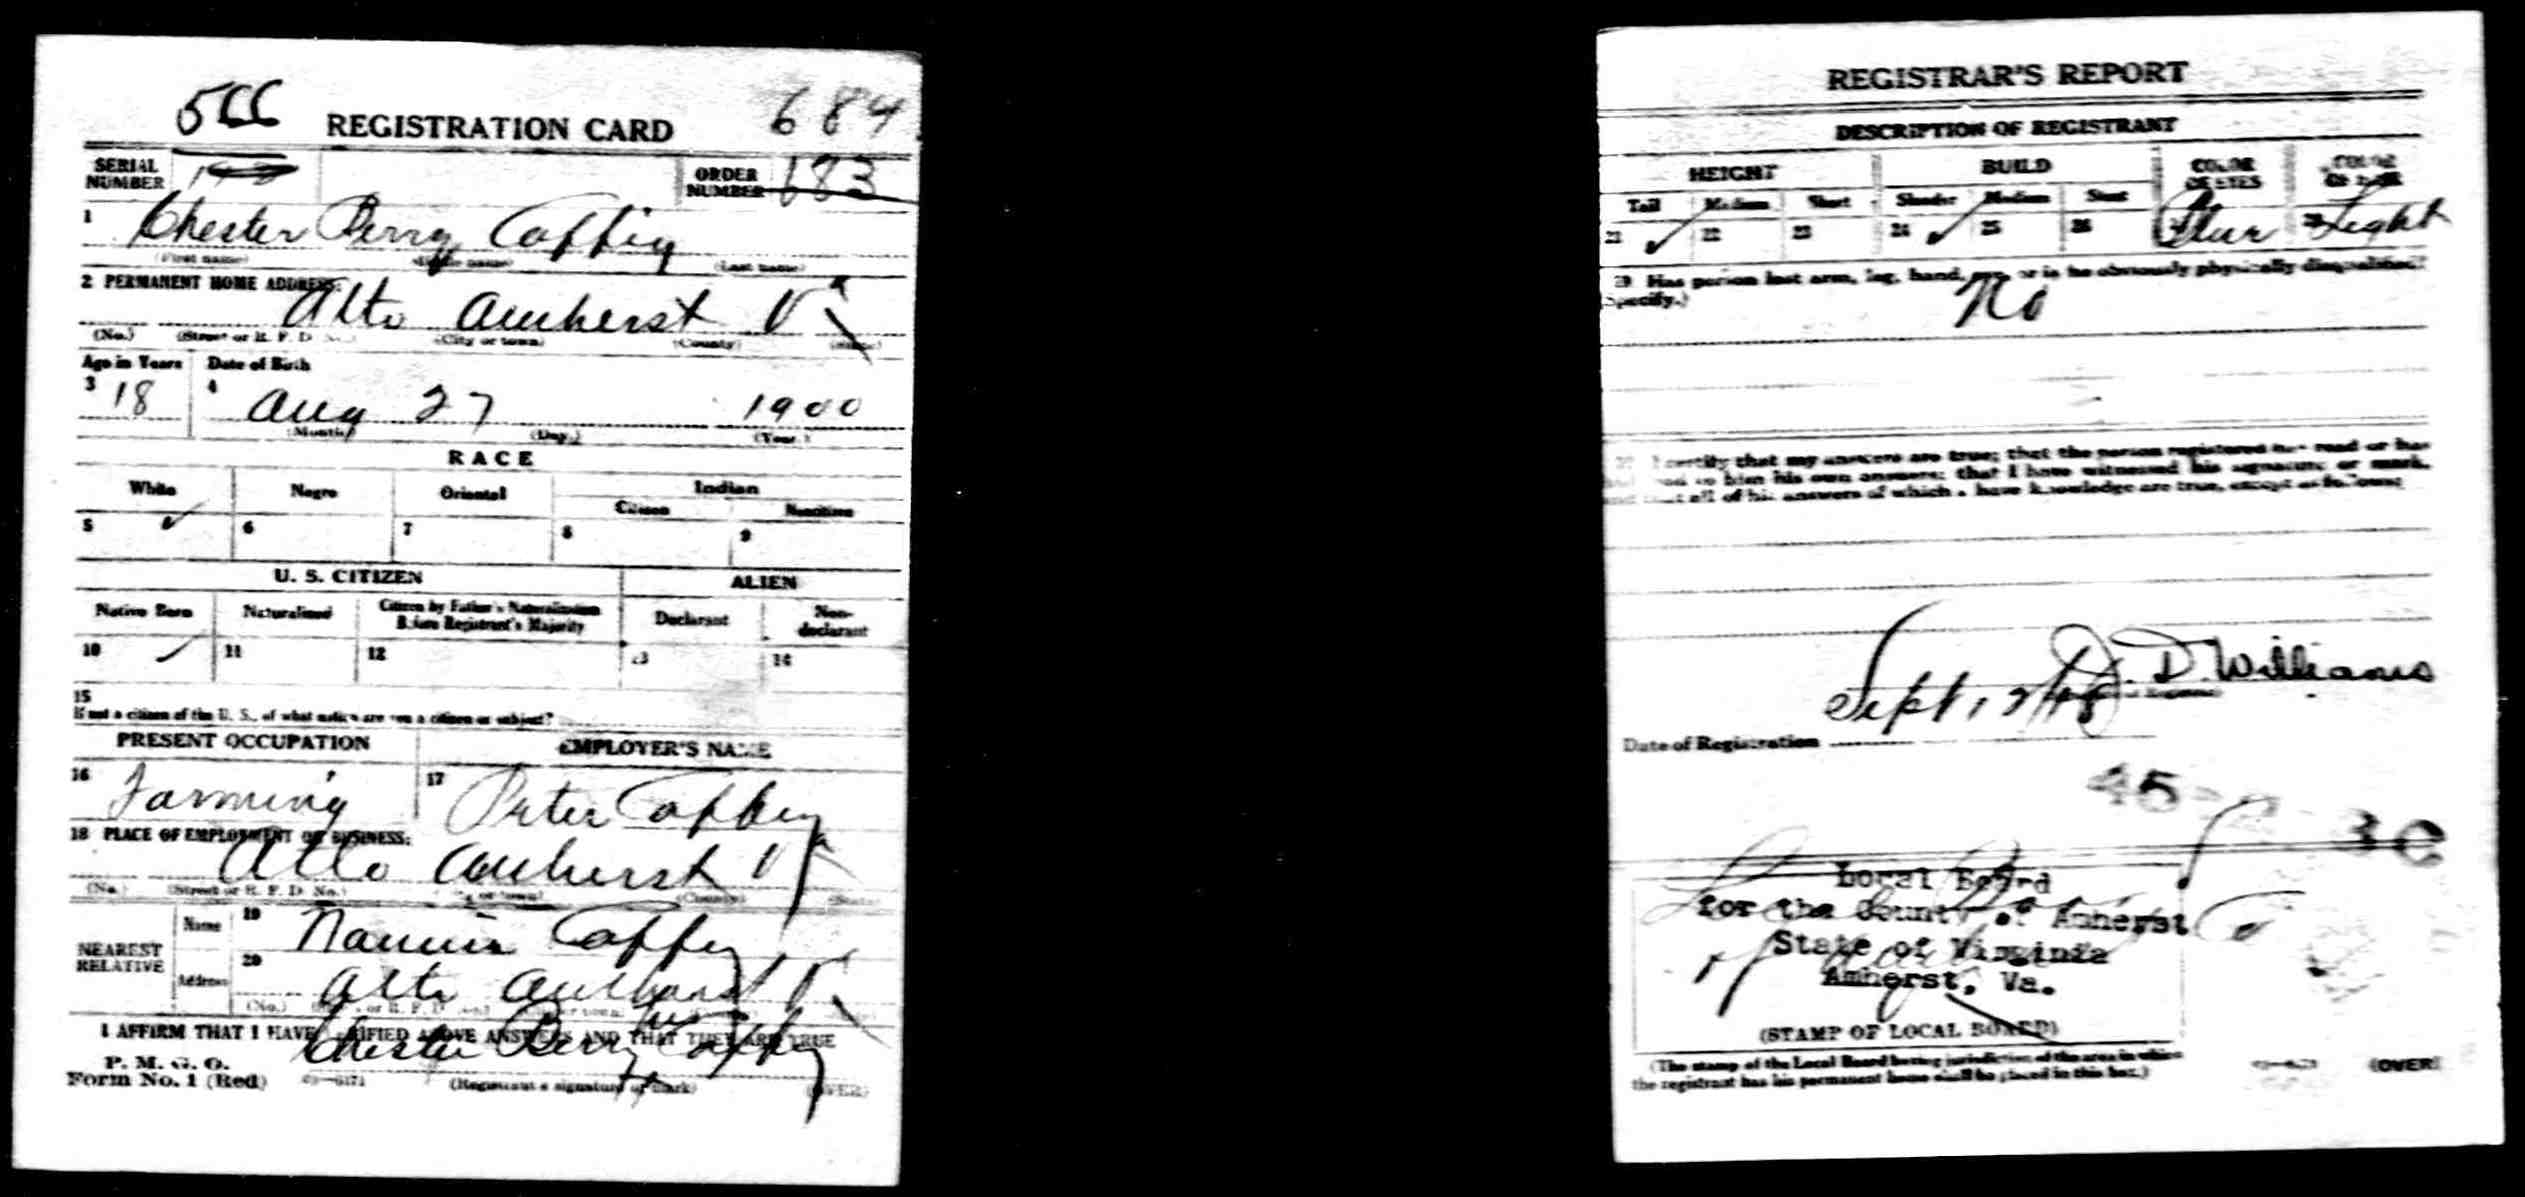 566 REGISTRATION CARD 684
SERIAL NUMBER ORDER NUMBER 683
1 Chester Berry Coffey
(First name) (Middle name) (Last name)
2 PERMANENT HOME ADDRESS:
Alto Amherst Va
(No.) (Street or R. F. D. No.) (City or town) (County) (State)
Age in Years Date of Birth
3 18 4 Aug 27 1900
(Month) (Day) (Year)
RACE
White Negro Oriental Indian
Citizen Noncitizen
5 ✓ 6 7 8 9
U. S. CITIZEN ALIEN
Native Born Naturalized Citizen by Father's Naturalization Before Registrant's Majority Declarant Non-declarant
10 ✓ 11 12 13 14
15
If not a citizen of the U. S., of what nation are you a citizen or subject?
PRESENT OCCUPATION EMPLOYER'S NAME
16 Farming 17 Peter Coffey
18 PLACE OF EMPLOYMENT OR BUSINESS:
Alto Amherst Va
(No.) (Street or R. F. D. No.) (City or town) (County) (State)
NEAREST RELATIVE
Name 19 Nannie Coffey
Address 20 Alto Amherst Va
(No.) (Street or R. F. D. No.)
I AFFIRM THAT I HAVE VERIFIED ABOVE ANSWERS AND THAT THEY ARE TRUE
P. M. G. O.
Form No. 1 (Red) Chester Berry Coffey
his
(Registrant's signature or mark) (OVER)
REGISTRAR'S REPORT
DESCRIPTION OF REGISTRANT
HEIGHT BUILD COLOR OF EYES COLOR OF HAIR
Tall Medium Short Slender Medium Stout
21 ✓ 22 23 24 ✓ 25 26 Blue Light
29 Has person lost arm, leg, hand, eye, or is he obviously physically disqualified?
(Specify.) No
30 I certify that my answers are true; that the person registered has read or has
had read to him his own answers; that I have witnessed his signature or mark,
and that all of his answers of which I have knowledge are true, except as follows:
D. D. Williams
Date of Registration Sept. 12/18
45
Local Board
for the County of Amherst
State of Virginia
Amherst, Va.
(STAMP OF LOCAL BOARD)
(The stamp of the Local Board having jurisdiction of the area in which
the registrant has his permanent home shall be placed in this box.)
(OVER)